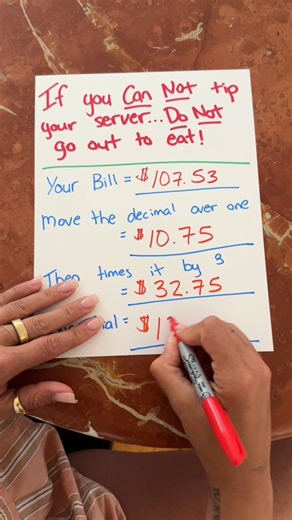 If you Can Not tip
your server... Do Not
go out to eat!
Your Bill = $107.53
Move the decimal over one
= $10.75
Then times it by 3
= $32.75
= $1
Sharpie